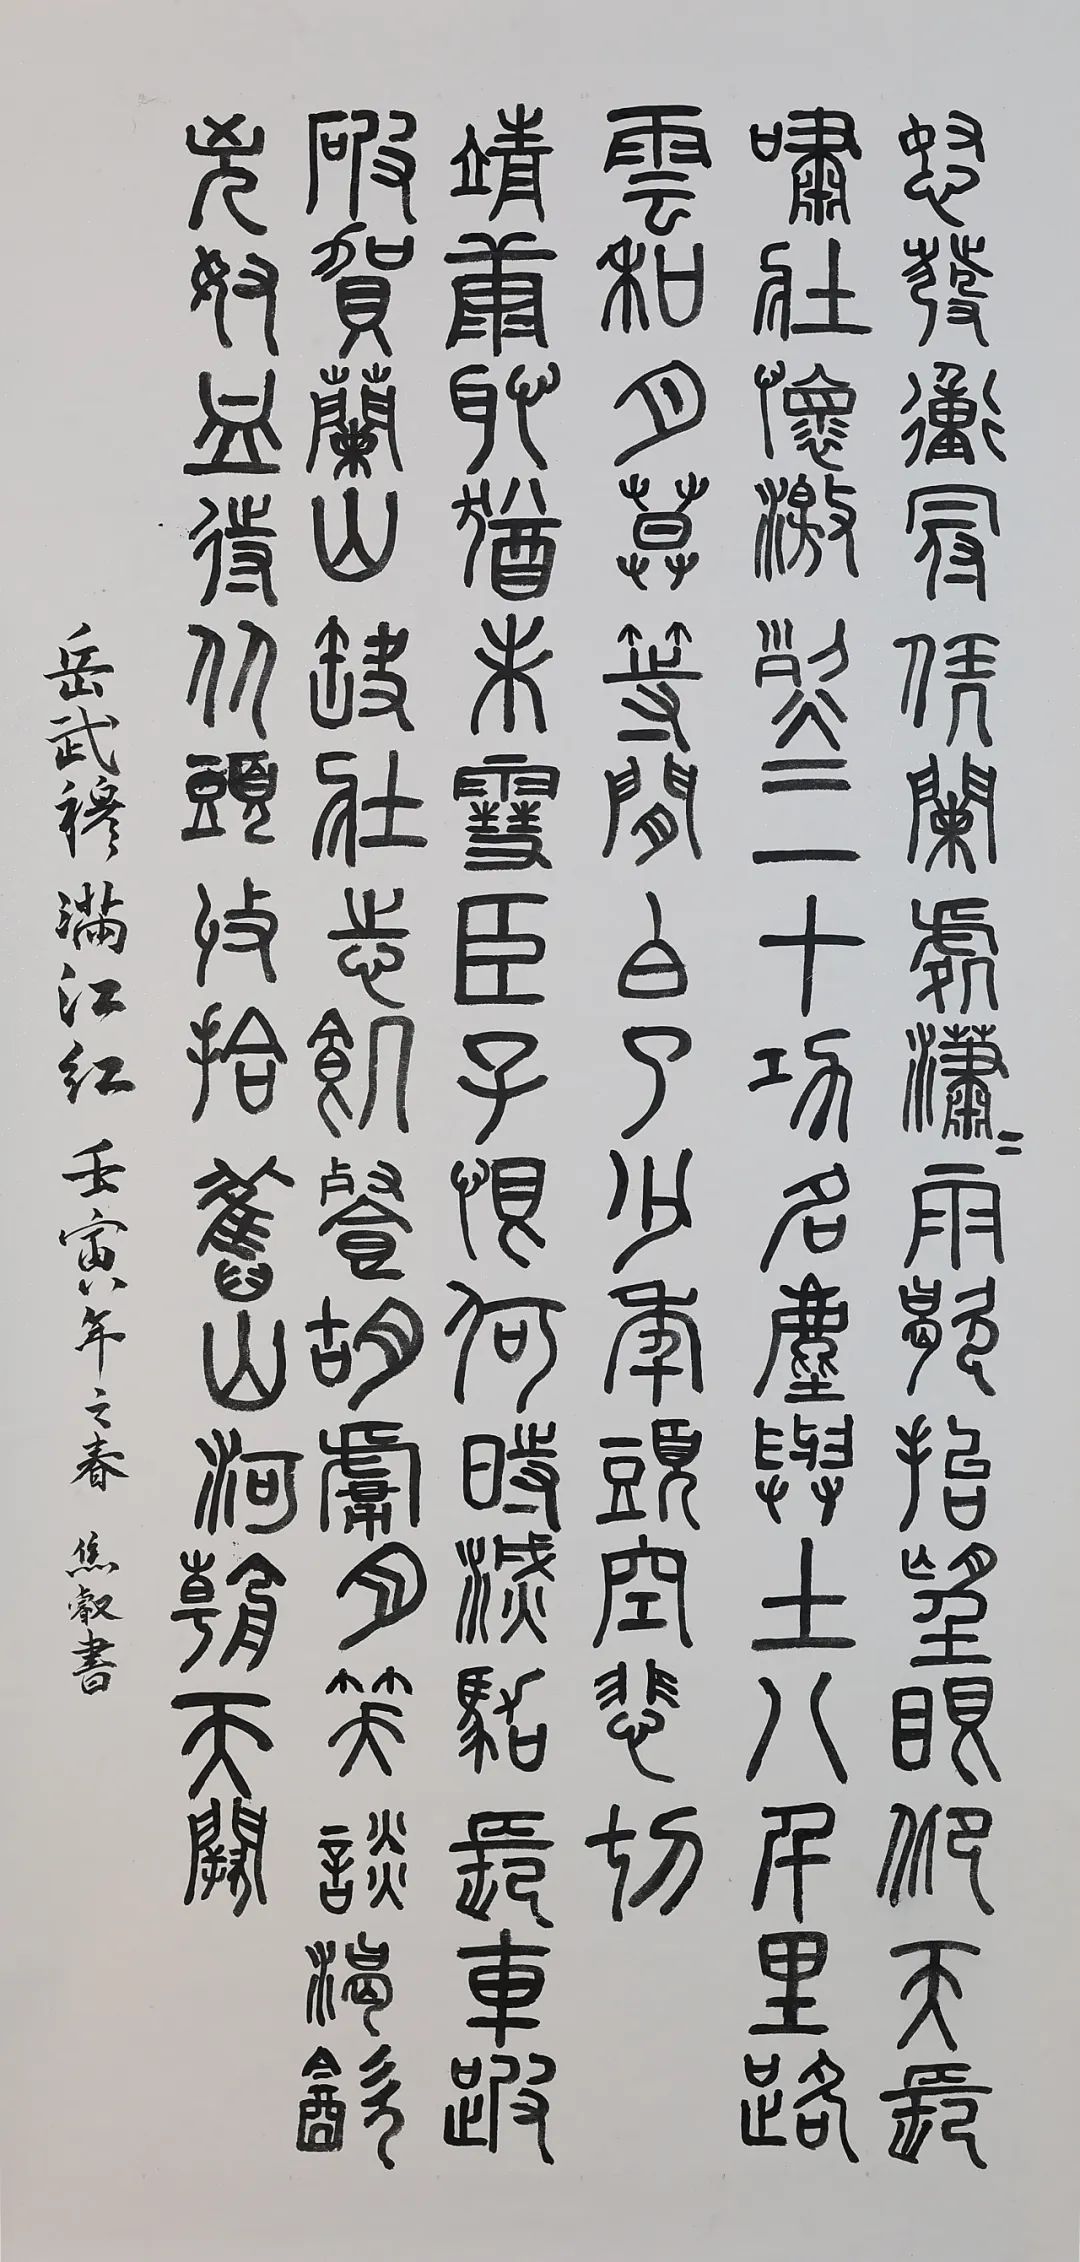 怒發衝冠凭闌處瀟〻雨歇抬望眼仰天長
嘯壯懷激烈三十功名塵與土八千里路
雲和月莫等閒白了少年頭空悲切
靖康恥猶未雪臣子恨何時滅駕長車踏
破賀蘭山缺壯志飢餐胡虜肉笑談渴飲
匈奴血待從頭收拾舊山河朝天闕
岳武穆 滿江紅 壬寅年之春 焦叡書